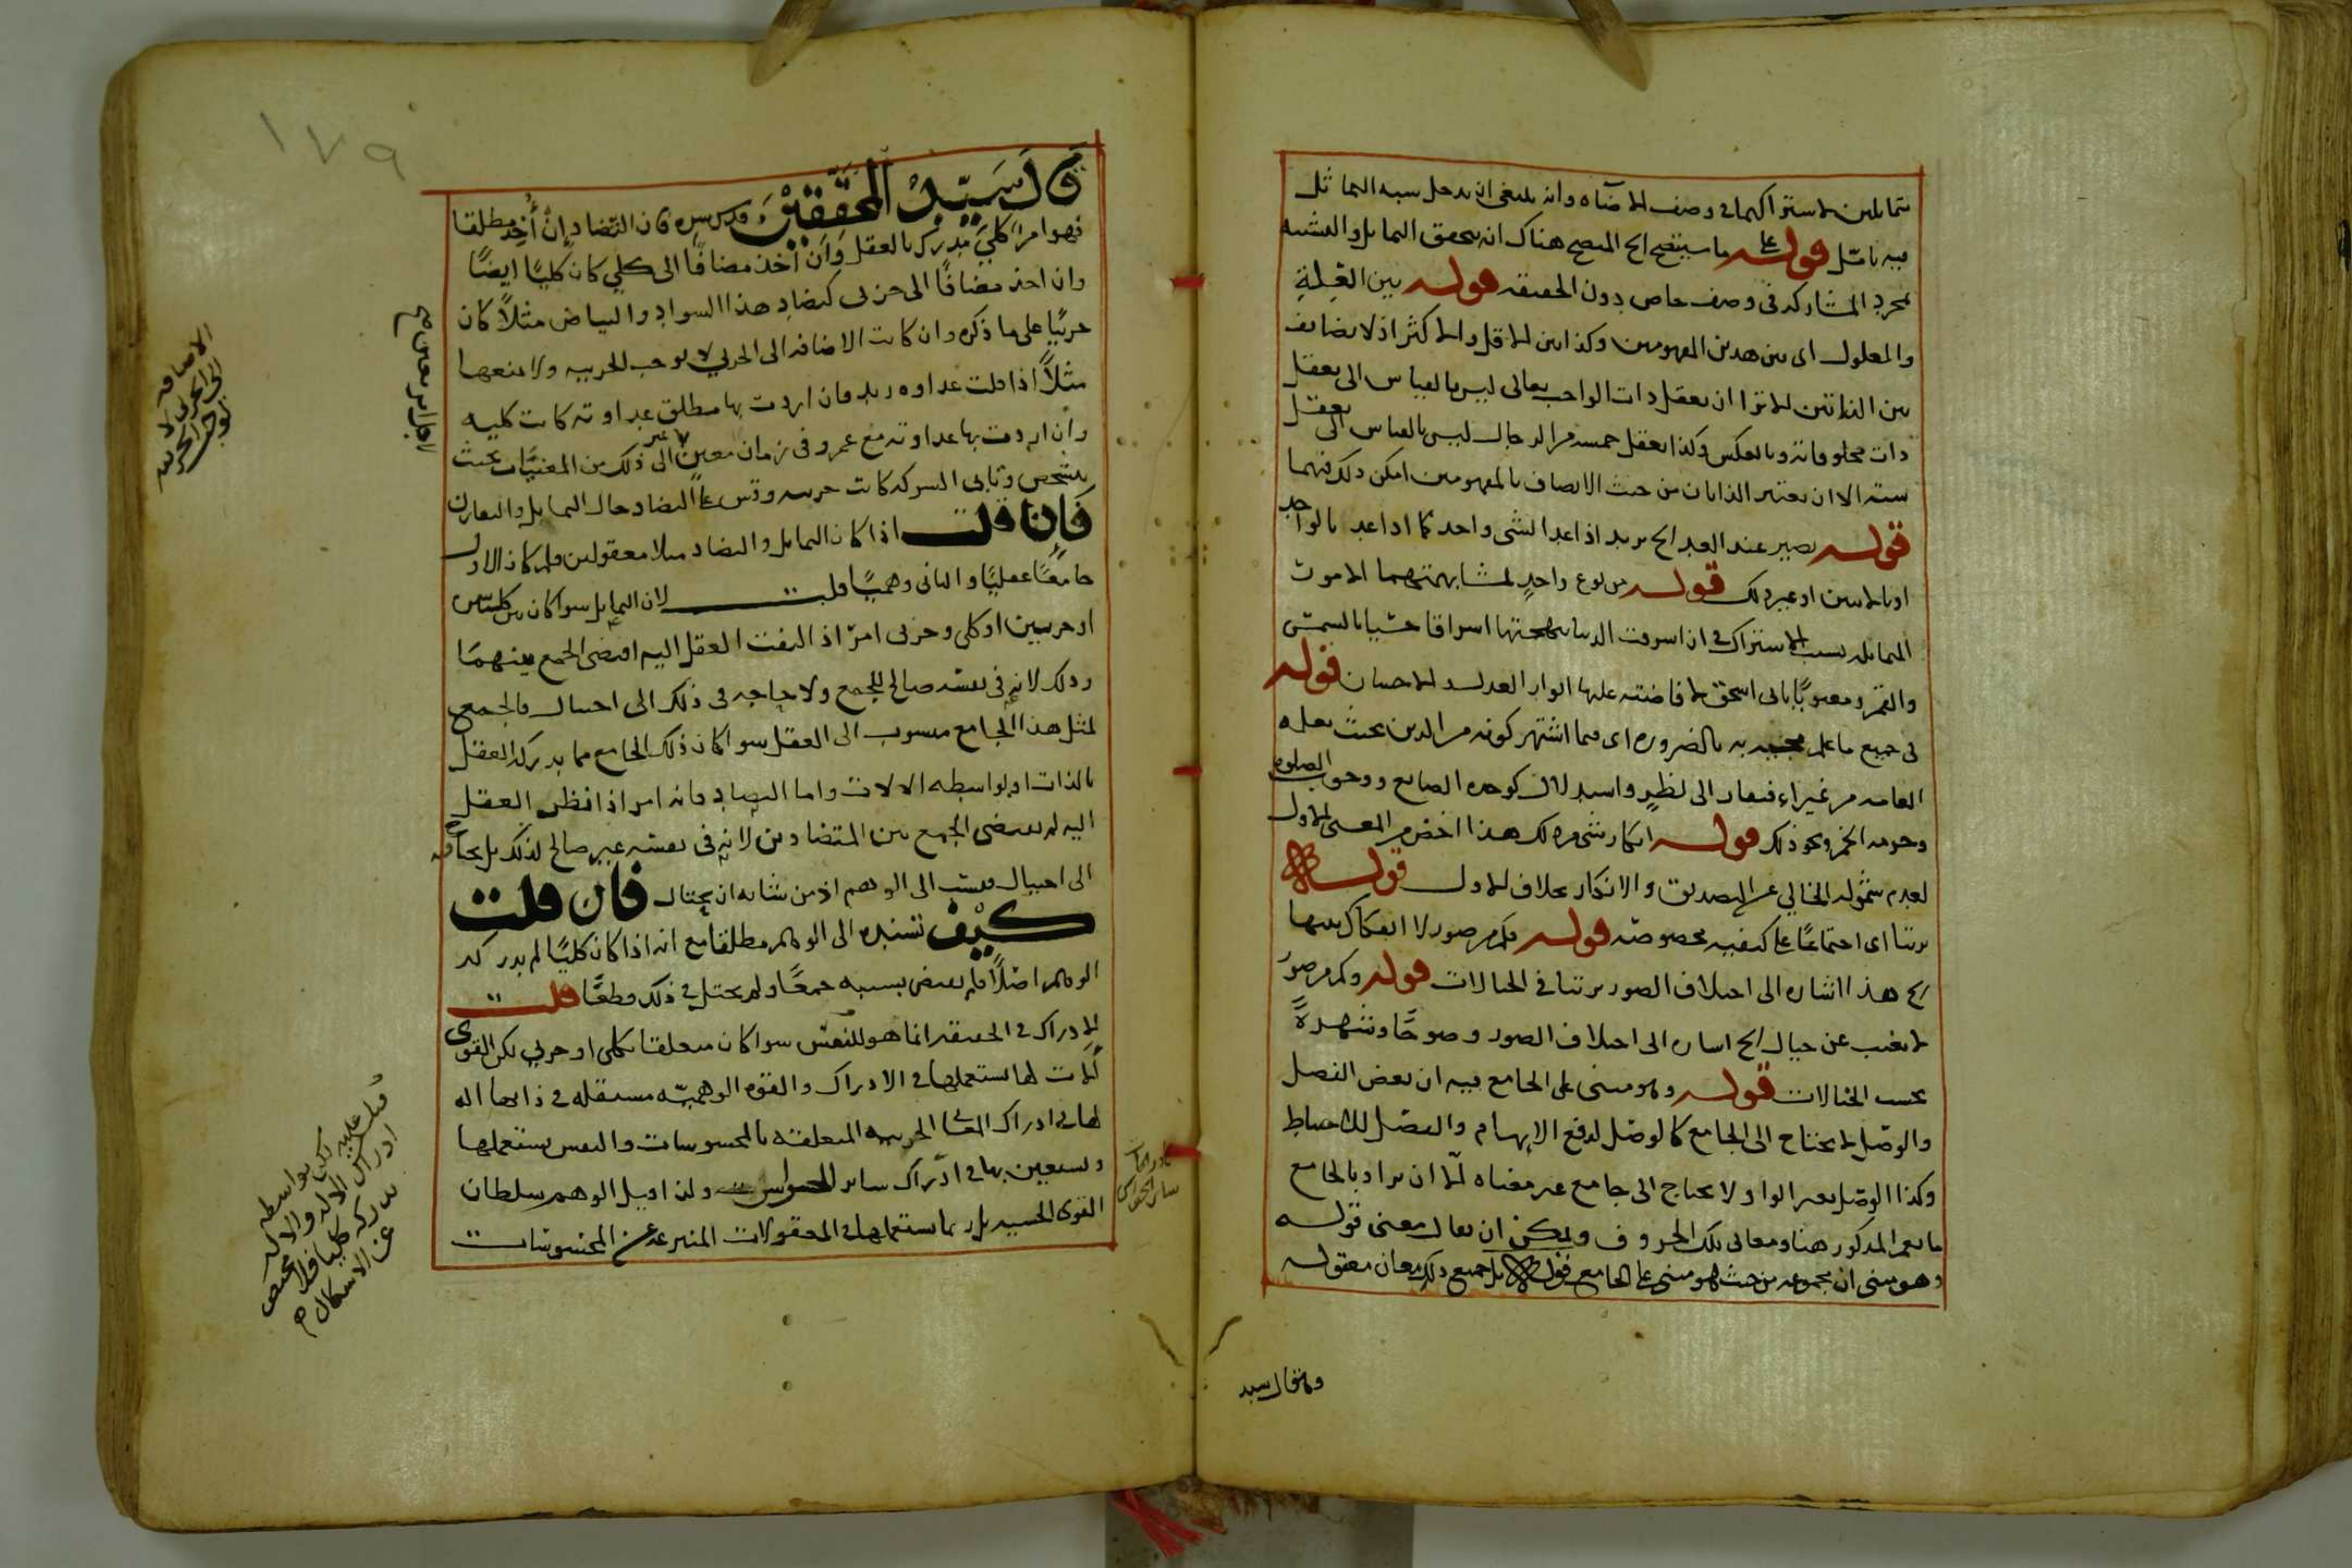 متماثلين لاشتراكهما في وصف الاضاه وانه ينبغي ان يدخل شبه التماثل
فيه تأمل قوله على ما سيتضح الخ المتضح هناك انه يتحقق التماثل والتشبيه
بمجرد المشاركه في وصف خاص دون الحقيقه قوله بين العلة
والمعلول اي بين هذين المفهومين وكذا بين الاقل والاكثر اذ لا تضايف
بين الذاتين الا ترا ان تعقل ذات الواجب تعالى ليس بالقياس الى تعقل
ذات مخلوقاته وبالعكس وكذا تعقل خمسه من الرجال ليس بالقياس الى تعقل
سته الا ان تعتبر الذاتان من حيث الاتصاف بالمفهومين امكن ذلك فيهما
قوله يصير عند العد الخ يريد اذا عد الشي واحد كما اذا عد بالواحد
او بالاثنين او غير ذلك قوله من نوع واحد لمشابهتهما الاموت
المتماثله بسبب الاشتراك في ان اشرقت الدنيا ببهجتها اشراقا حسيا بالشمس
والقمر ومعنويا بابي اسحق لافاضته عليها انوار العدل والاحسان قوله
في جميع ما علم مجيئه به بالضروره اي فيما اشتهر كونه من الدين بحيث يعلمه
العامه من غير افتقار الى نظر واستدلال كوحده الصانع ووجوب الصلوه
وحرمه الخمر ونحو ذلك قوله انكار شي من ذلك هذا اخص من المعنى الاول
لعدم شموله الخالي عن التصديق والانكار بخلاف الاول قوله
ترتبا اي اجتماعا على كيفيه مخصوصه قوله فكم من صور لا انفكاك بينها
الخ هذا اشاره الى اختلاف الصور ترتبا في الخيالات قوله وكم من صور
لا تغيب عن خيال الخ اشاره الى اختلاف الصور وضوحا وشهرة
بحسب الخيالات قوله وهو مبنى على الجامع فيه ان بعض الفصل
والوصل لا يحتاج الى الجامع كالوصل لدفع الايهام والفصل للاحتياط
وكذا الوصل بغير الواو لا يحتاج الى جامع غير معناه الا ان يراد بالجامع
ما يعم المذكور هنا ومعاني تلك الحروف ويمكن ان يقال معنى قوله
وهو مبنى ان مجموعه من حيث هو مبنى على الجامع قوله بل جميع ذلك معان معقوله
وقال سيد
١٧٩
قال سيد المحققين قدس سره فان التضاد ان أخذ مطلقا
فهو امر كلي مدرك بالعقل وان أخذ مضافا الى كلي كان كليا ايضا
وان اخذ مضافا الى جزئي كتضاد هذا السواد والبياض مثلا كان
جزئيا على ما ذكره وان كانت الاضافه الى الجزئي لا توجب الجزئيه ولا تمنعها
مثلا اذا قلت عداوه زيد فان اردت بها مطلق عداوته كانت كليه
وان اردت بها عداوته مع عمرو في زمان معين الى غير ذلك من المعينات بحيث
يتشخص وتابى الشركه كانت جزئيه وقس على التضاد حال التماثل والتقارن
فإن قلت اذا كان التماثل والتضاد مثلا معقولين فلم كان الاول
جامعا عقليا والثاني وهميا قلت لان التماثل سوا كان بين كليين
او جزئيين او كلي وجزئي امر اذا التفت العقل اليه اقتضى الجمع بينهما
وذلك لانه في نفسه صالح للجمع ولا حاجه في ذلك الى احتيال فالجمع
لمثل هذا الجامع منسوب الى العقل سوا كان ذلك الجامع مما يدركه العقل
بالذات او بواسطه الالات واما التضاد فانه امر اذا نظر العقل
اليه لم يقتض الجمع بين المتضادين لانه في نفسه غير صالح لذلك بل يحتاج فيه
الى احتيال فنسب الى الوهم اذ من شانه ان يحتال فان قلت
كيف تسنده الى الوهم مطلقا مع انه اذا كان كليا لم يدركه
الوهم اصلا فلم يقتض بسببه جمعا ولم يحتل في ذلك قطعا قلت
الادراك في الحقيقه انما هو للنفس سوا كان متعلقا بكلي او جزئي لكن القوى
الات لها تستعملها في الادراك والقوه الوهميه مستقله في ذاتها اله
لها في ادراك المعاني الجزئيه المتعلقه بالمحسوسات والنفس تستعملها
وتستعين بها في ادراك سائر الحواس ولذا قيل الوهم سلطان
القوى الحسيه بل ربما تستعملها في المعقولات المنتزعه عن المحسوسات
الاضافه
الى الجزئي لا
توجب الجزئيه
قيل عليه
ادراك بواسطه
الاله والاله
تدركه كليا فلا محيص
عن الاشكال